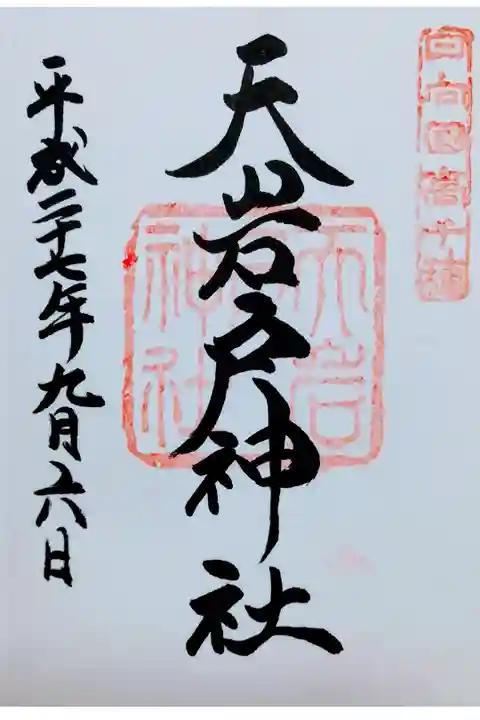 日向国高千穂
天岩戸神社
天岩戸神社
平成二十七年九月六日